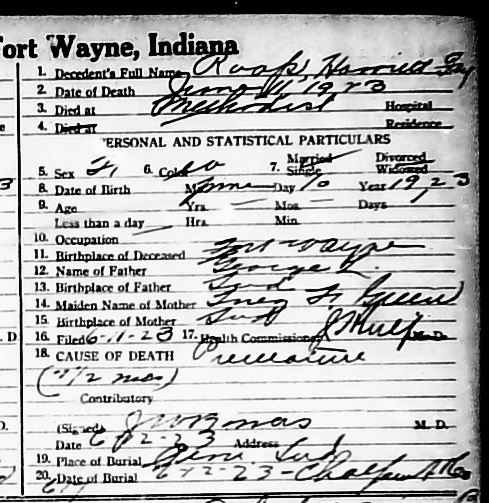 Fort Wayne, Indiana
1. Decedent's Full Name Roop, Harriett
2. Date of Death June 11, 1923
3. Died at Methodist Hospital
4. Died at Residence
PERSONAL AND STATISTICAL PARTICULARS
5. Sex F. 6. Color W 7. Married Single Divorced Widowed
8. Date of Birth Mo. June Day 10 Year 1923
9. Age Yrs. Mos. Days 1
Less than a day Hrs. Min.
10. Occupation
11. Birthplace of Deceased Ft Wayne
12. Name of Father George
13. Birthplace of Father Ind
14. Maiden Name of Mother Inez F. Green
15. Birthplace of Mother Ind
16. Filed 6-11-23 17. Health Commissioner M. D.
18. CAUSE OF DEATH Premature
(7 1/2 mos)
Contributory
(Signed) M. D.
Date 6-12-23 Address
19. Place of Burial Ind
20. Date of Burial 6-12-23-